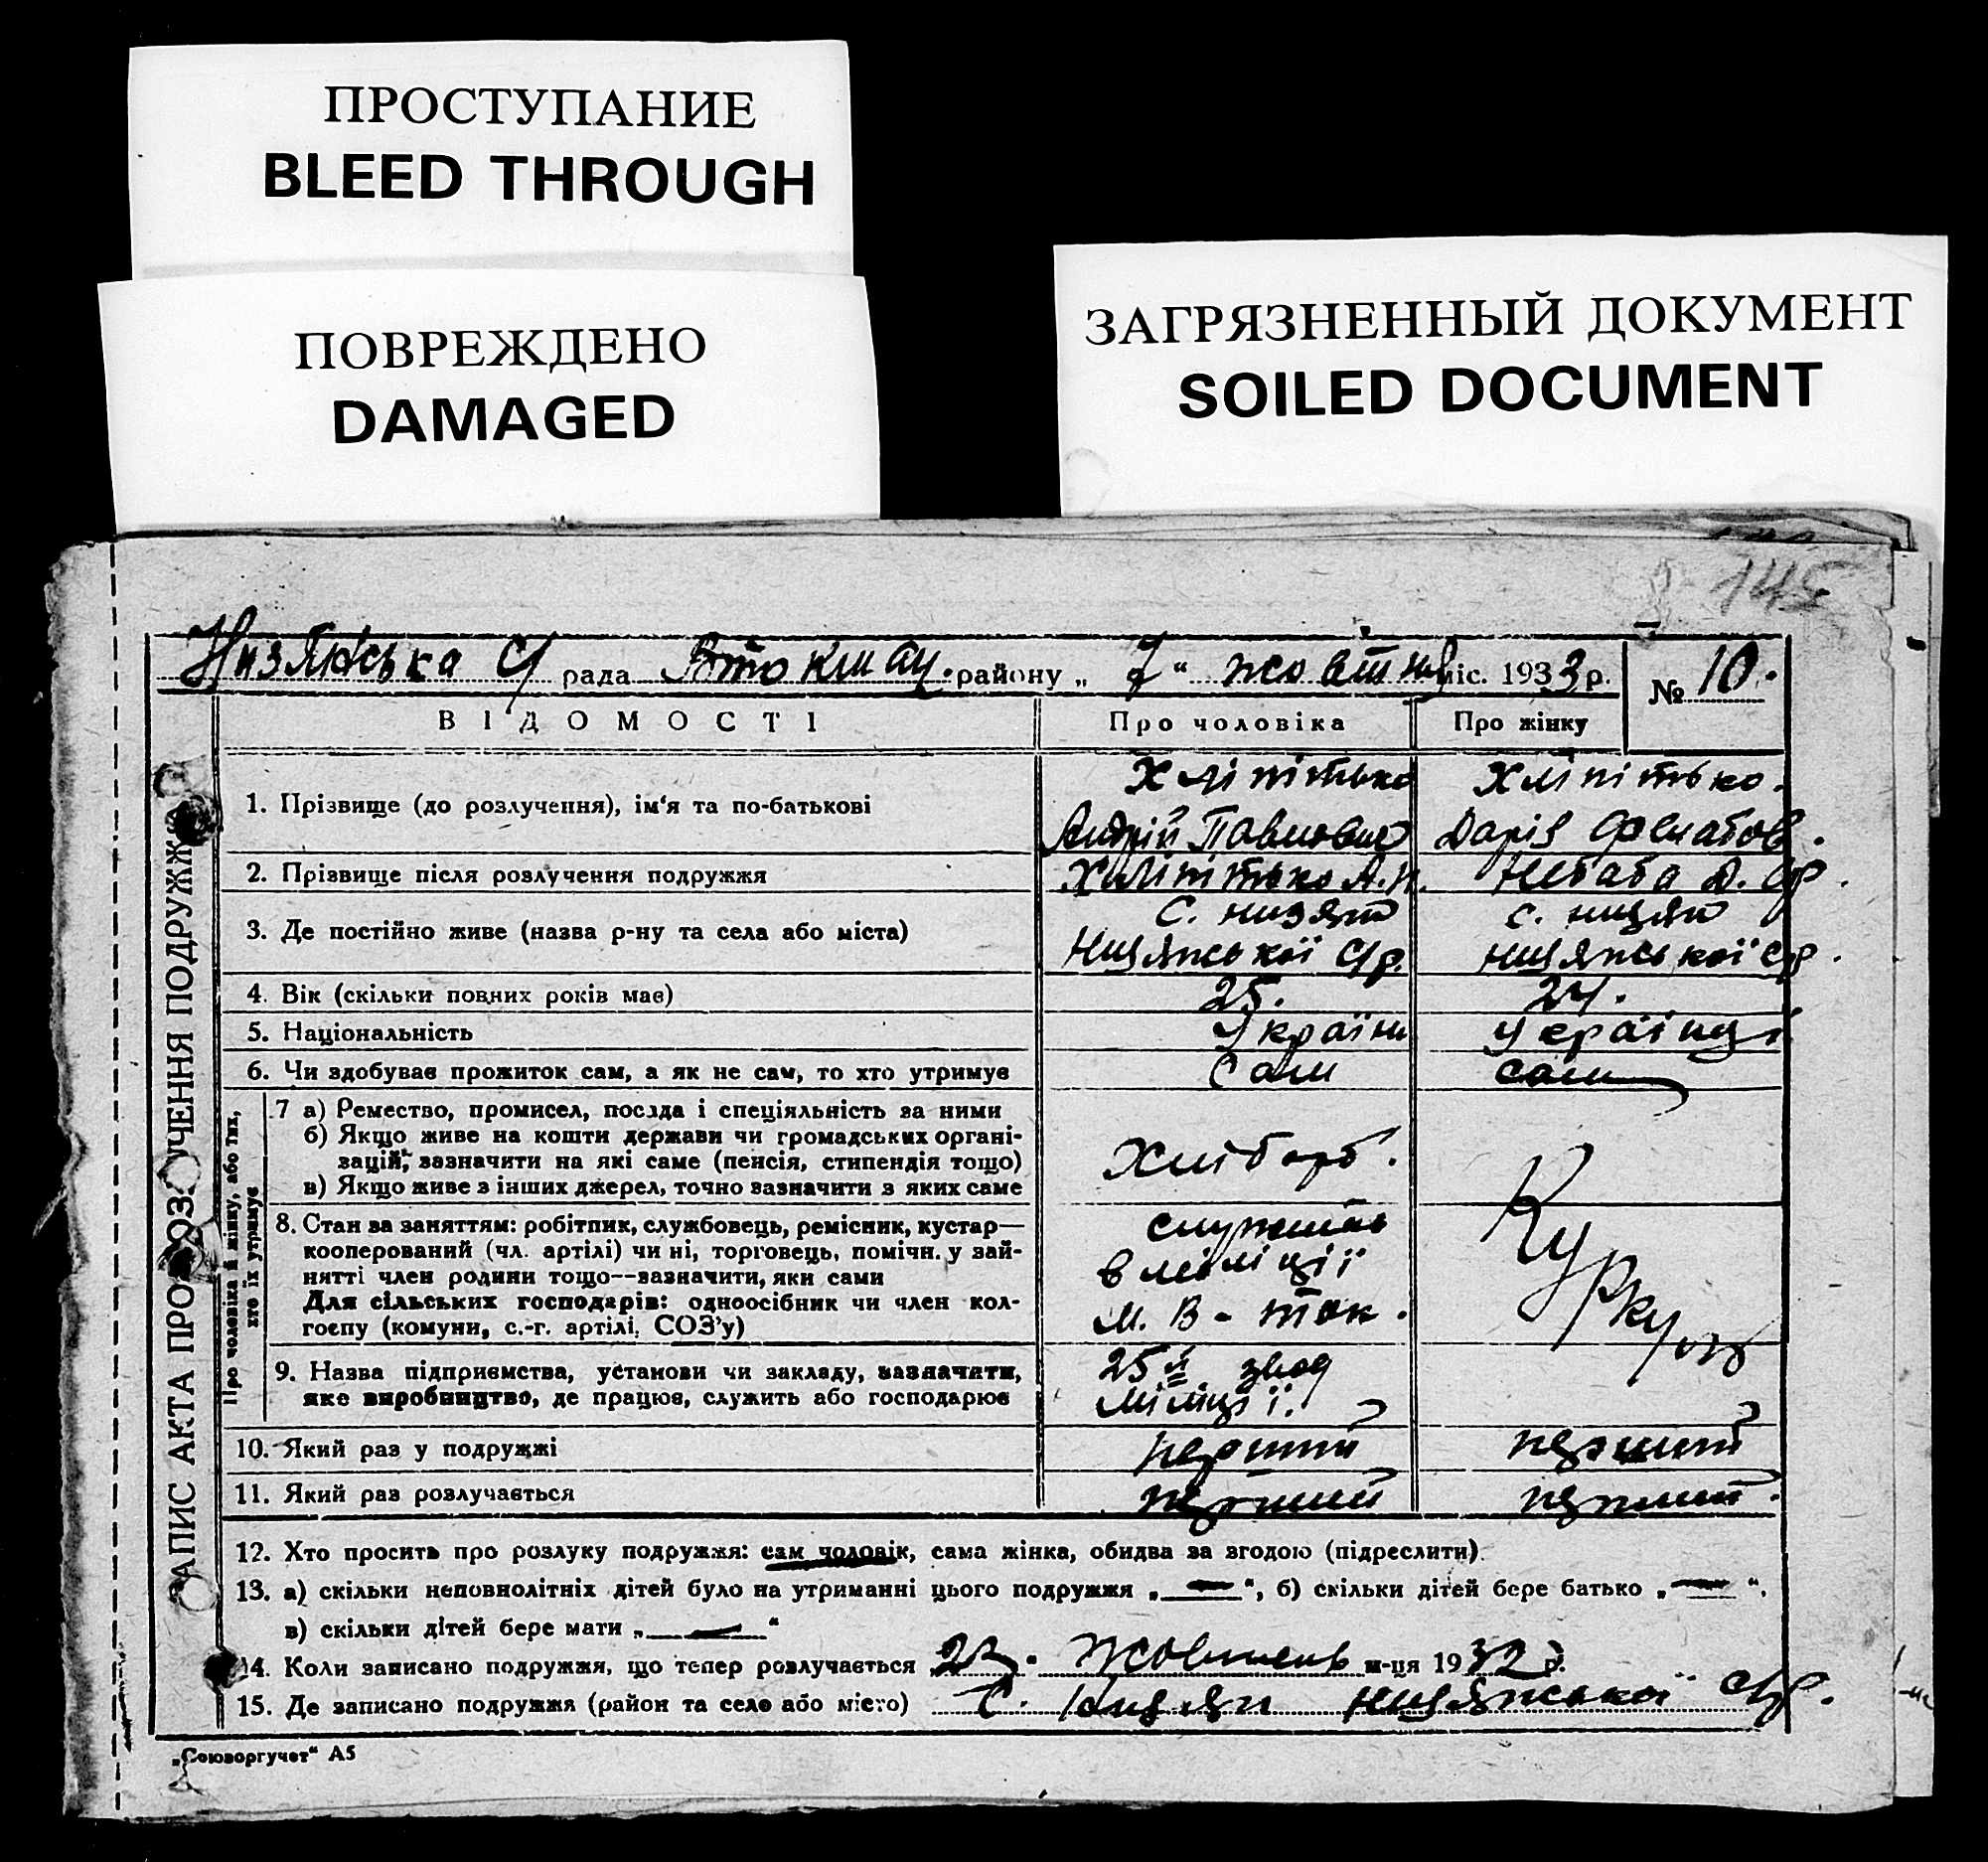 ПРОСТУПАНИЕ
BLEED THROUGH
ПОВРЕЖДЕНО
DAMAGED
ЗАГРЯЗНЕННЫЙ ДОКУМЕНТ
SOILED DOCUMENT
145
Низянська С/ рада В токмац. району „ 7 “ жовтня міс. 1933 р. № 10.
ВІДОМОСТІ Про чоловіка Про жінку
1. Прізвище (до розлучення), ім‘я та по-батькові
Хліпітько Хліпітько.
Андрій Павлович Дарія Филатов.
2. Прізвище після розлучення подружжя Хліпітько А.П. Небаба Д. Ф.
3. Де постійно живе (назва р-ну та села або міста)
с. Низян с. Низян
Низянської С/р. Низянської С/р.
4. Вік (скільки повних років має) 25. 24.
5. Національність Україн Українці
6. Чи здобуває прожиток сам, а як не сам, то хто утримує Сам сам
Про чоловіка й жінку, або тих,
хто їх утримує
7 а) Ремество, промисел, посада і спеціяльність за ними
б) Якщо живе на кошти держави чи громадських органі-
зацій, зазначити на які саме (пенсія, стипендія тощо)
в) Якщо живе з інших джерел, точно зазначити з яких саме
Хлібороб.
8. Стан за заняттям: робітник, службовець, ремісник, кустар—
кооперований (чл. артілі) чи ні, торговець, помічн. у зай-
нятті член родини тощо—зазначити, яки сами
Для сільських господарів: одноосібник чи член кол-
госпу (комуни, с.-г. артілі, СОЗ‘у)
в міліції
м. В-Ток.
Куркуль
9. Назва підприємства, установи чи закладу, зазначити,
яке виробництво, де працює, служить або господарює
25й звод
Міліції.
10. Який раз у подружжі перший перший
11. Який раз розлучається перший перший.
12. Хто просить про розлуку подружжя: сам чоловік, сама жінка, обидва за згодою (підреслити).
13. а) скільки неповнолітніх дітей було на утриманні цього подружжя „ — “, б) скільки дітей бере батько „ — “.
в) скільки дітей бере мати „ — “
14. Коли записано подружжя, що тепер розлучається 23. Жовтень м-ця 1932 р.
15. Де записано подружжя (район та село або місто) С. Низян Низянської С/р.
ЗАПИС АКТА ПРО РОЗЛУЧЕННЯ ПОДРУЖЖЯ
„Союзоргучет“ А5